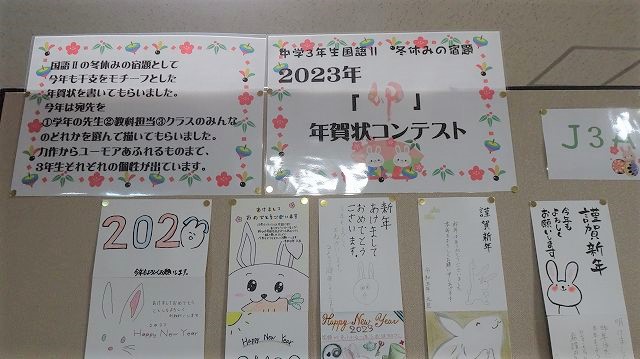 国語Ⅱの冬休みの宿題として
今年も干支をモチーフとした
年賀状を書いてもらいました。
今年は宛先を
①学年の先生②教科担当③クラスのみんな
のどれかを選んで描いてもらいました。
力作からユーモアあふれるものまで、
3年生それぞれの個性が出ています。
中学3年生国語Ⅱ 冬休みの宿題
2023年
『卯』
年賀状コンテスト
J3A
202
今年もよろしくお願いします。
あけまして
おめでとう
2023
Happy New Year
あけまして
おめでとうございます
Happy New Year
新年
あけまして
おめでとう
ございます。
Happy New Year
2023
謹賀新年
謹賀新年
今年も
よろしく
お願いします